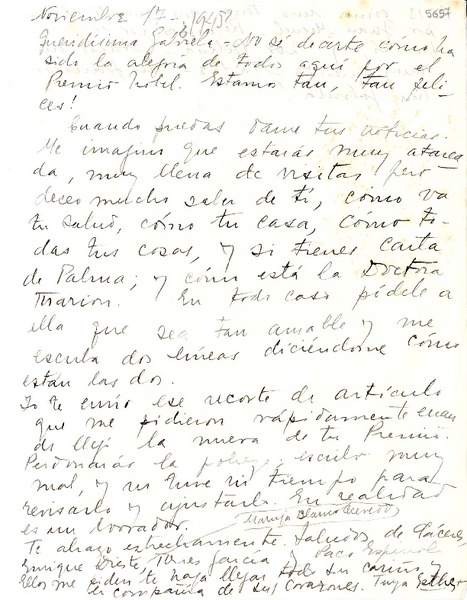 5657
Noviembre 17 - 1945
Queridísima Gabriela: No sé decirte cómo ha
sido la alegría de todos aquí por el
Premio Nobel. Estamos tan, tan feli-
ces!
Cuando puedas dame tus noticias.
Me imagino que estarás muy atarea
da, muy llena de visitas pero
deseo mucho saber de tí, cómo va
tu salud, cómo tu casa, cómo to-
das tus cosas, y si tienes carta
de Palma; y cómo está la Doctora
Marion. En todo caso pídele a
ella que sea tan amable y me
escriba dos líneas diciéndome cómo
están las dos.
Yo te envío ese recorte de artículo
que me pidieron rápidamente cuan
do llegó la nueva de tu Premio.
Perdonarás la pobreza, escribo muy
mal, y no tuve ni tiempo para
revisarlo y ajustarlo. En realidad
es un borrador.
Te abrazo estrechamente. Saludos de Cáceres,
Enrique Dieste, Torres García, Paco Espínola
Ellos me piden te haga llegar todo su cariño y
la compañía de sus corazones. Tuya Esther